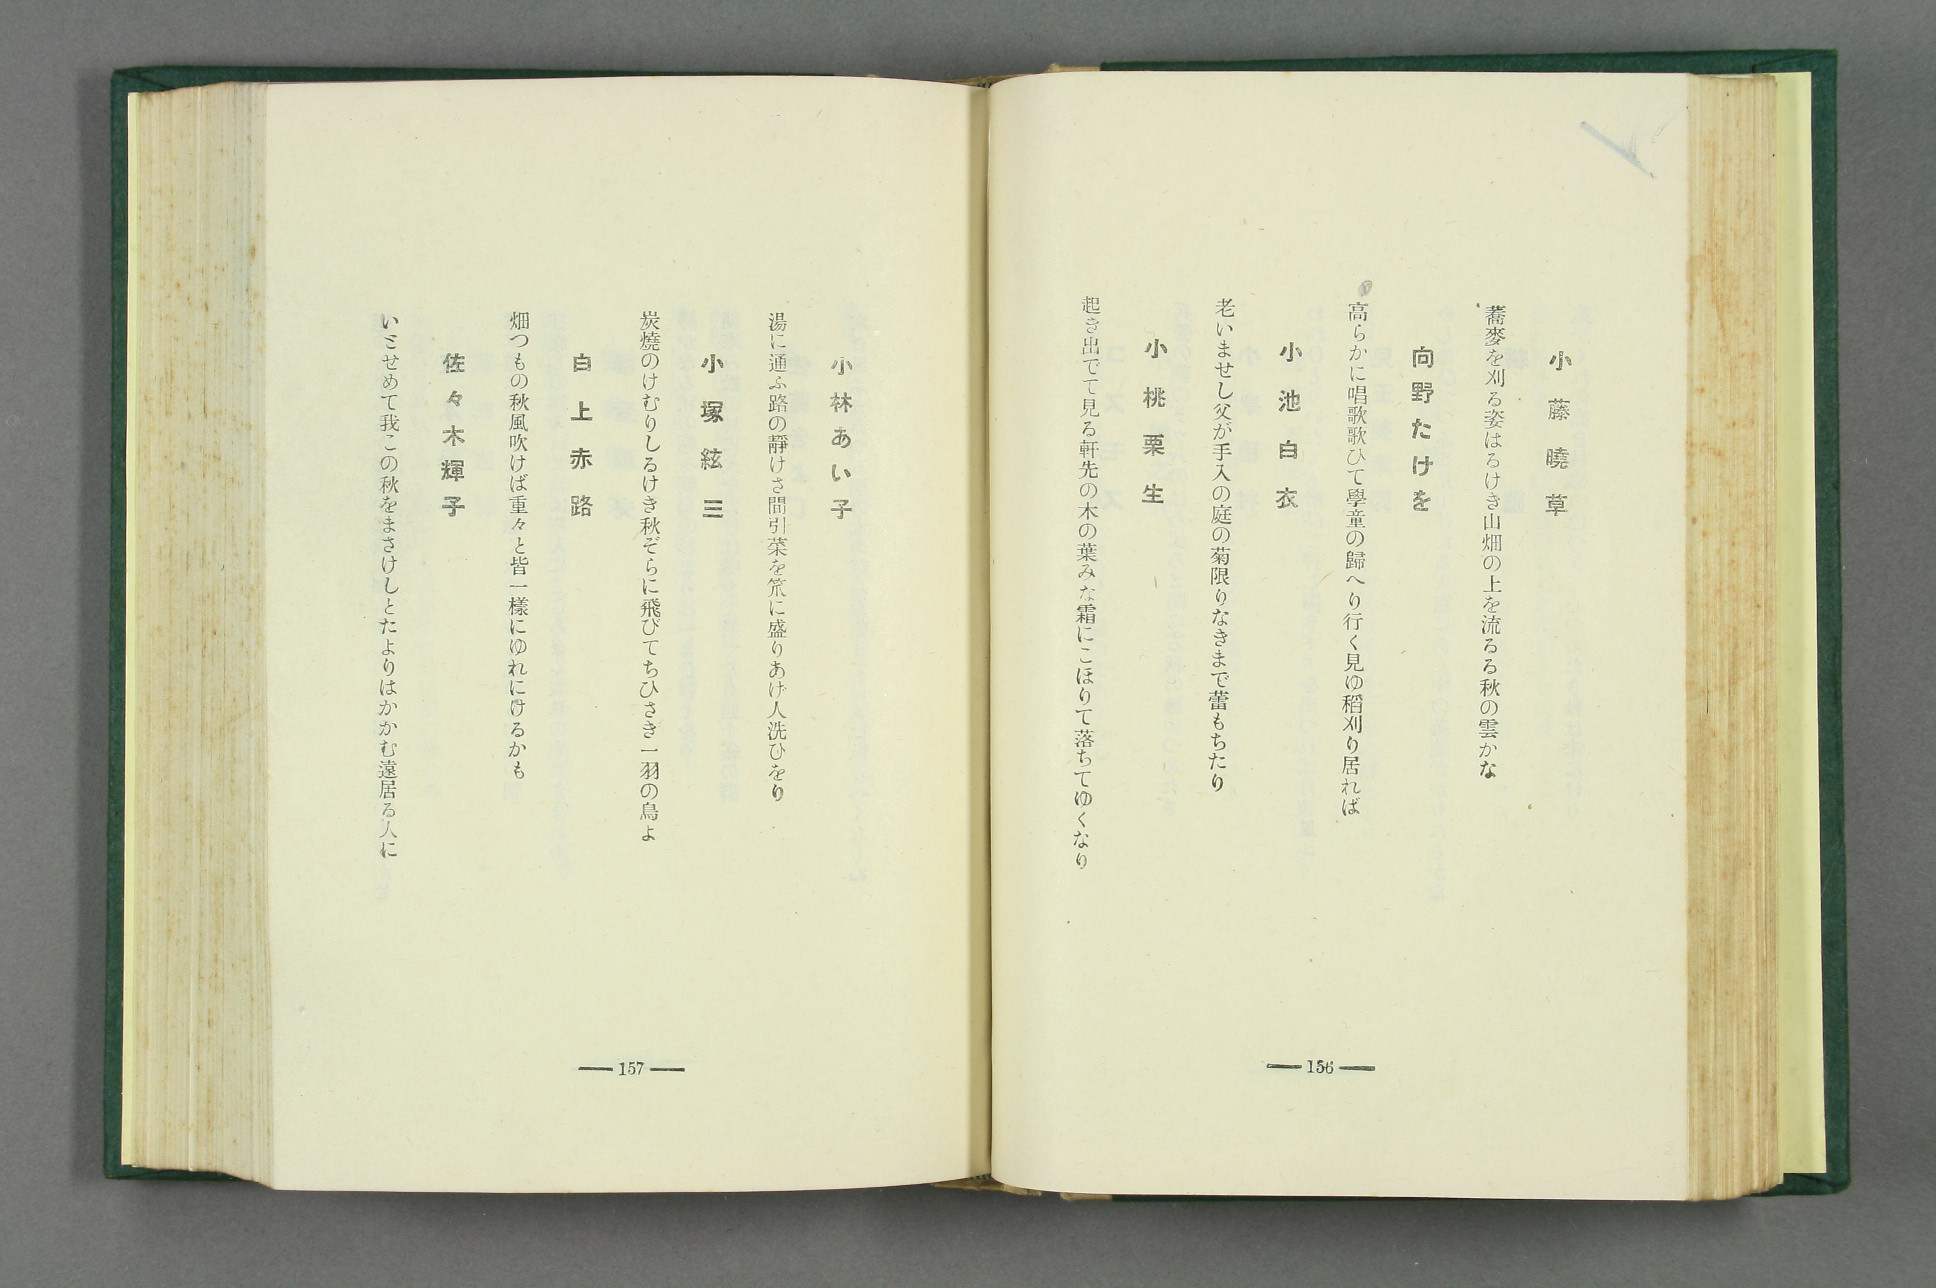 小藤曉草
蕎麥を刈る姿はるけき山畑の上を流るる秋の雲かな
向野たけを
高らかに唱歌歌ひて學童の歸へり行く見ゆ稻刈り居れば
小池白衣
老いませし父が手入の庭の菊限りなきまで蕾もちたり
小桃栗生
起き出でて見る軒先の木の葉みな霜にこほりて落ちてゆくなり
156
小林あい子
湯に通ふ路の靜けさ間引菜を笊に盛りあげ人洗ひをり
小塚絃三
炭燒のけむりしるけき秋ぞらに飛びてちひさき一羽の鳥よ
白上赤路
畑つもの秋風吹けば重々と皆一樣にゆれにけるかも
佐々木輝子
いとせめて我この秋をまさけしとたよりはかかむ遠居る人に
157